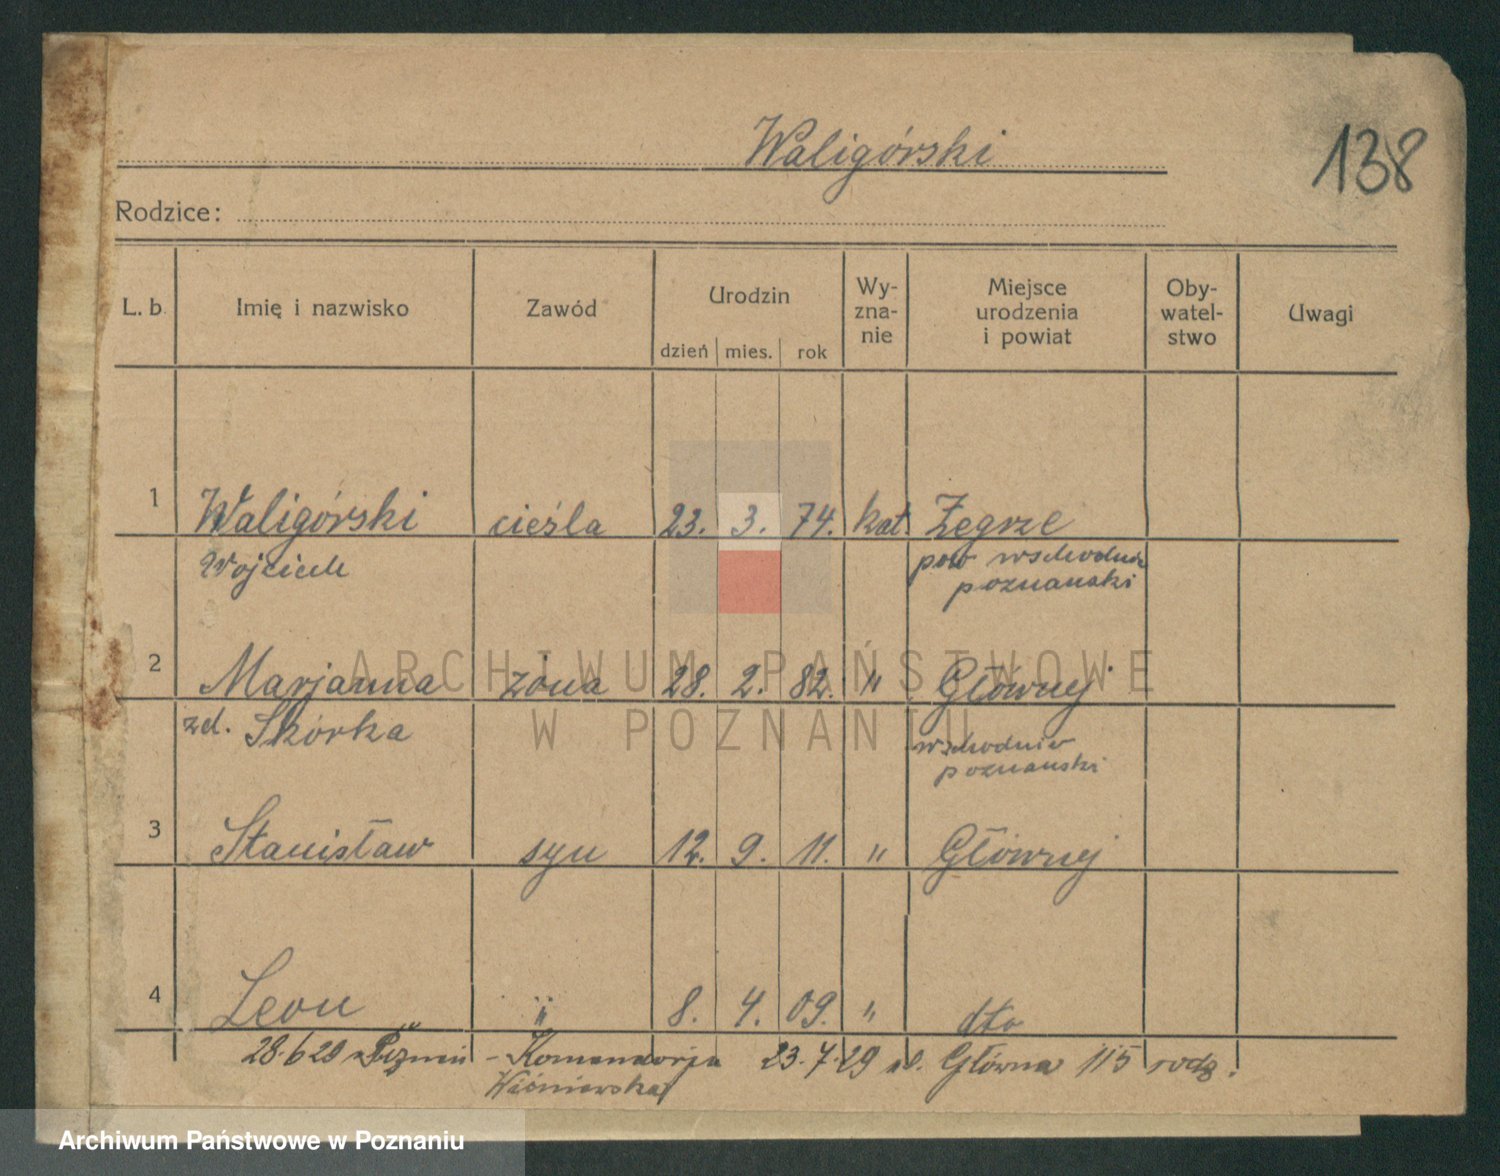 Waligórski
138
Rodzice:
L. b. Imię i nazwisko Zawód Urodzin dzień mies. rok Wy-zna-nie Miejsce urodzenia i powiat Oby-watel-stwo Uwagi
1 Waligórski cieśla 23. 3. 74. kat. Żegrze
Wojciech pow wschodnio
poznański
2 Marjanna żona 28. 2. 82. " Głównej
zd. Skórka wschodnio
poznański
3 Stanisław syn 12. 9. 11. " Głównej
4 Leon " 8. 4. 09. " dto
28.6 29 Poznań - Komandorja 23.7.29 Główna 115 rodz.
Wiśniewska
ARCHIWUM PAŃSTWOWE
W POZNANIU
Archiwum Państwowe w Poznaniu